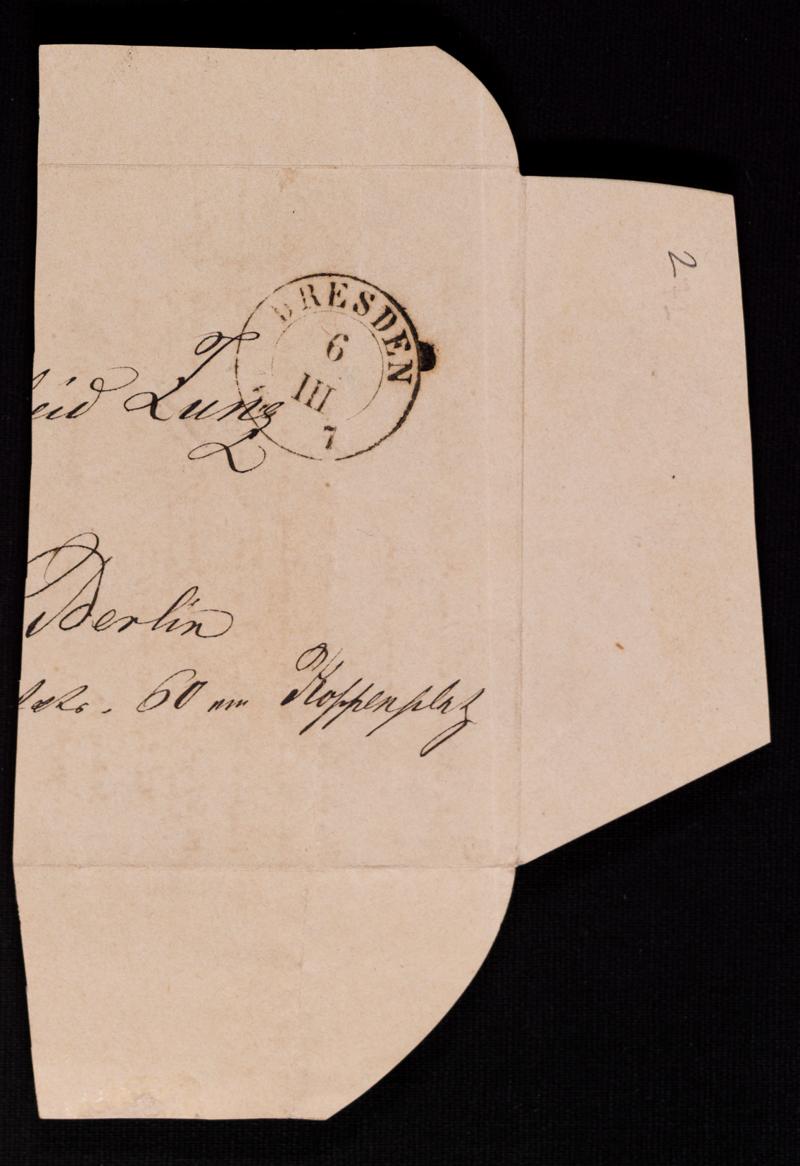 2
DRESDEN
6
III
7
T
Lunz
Berlin
60 am Koppenplatz